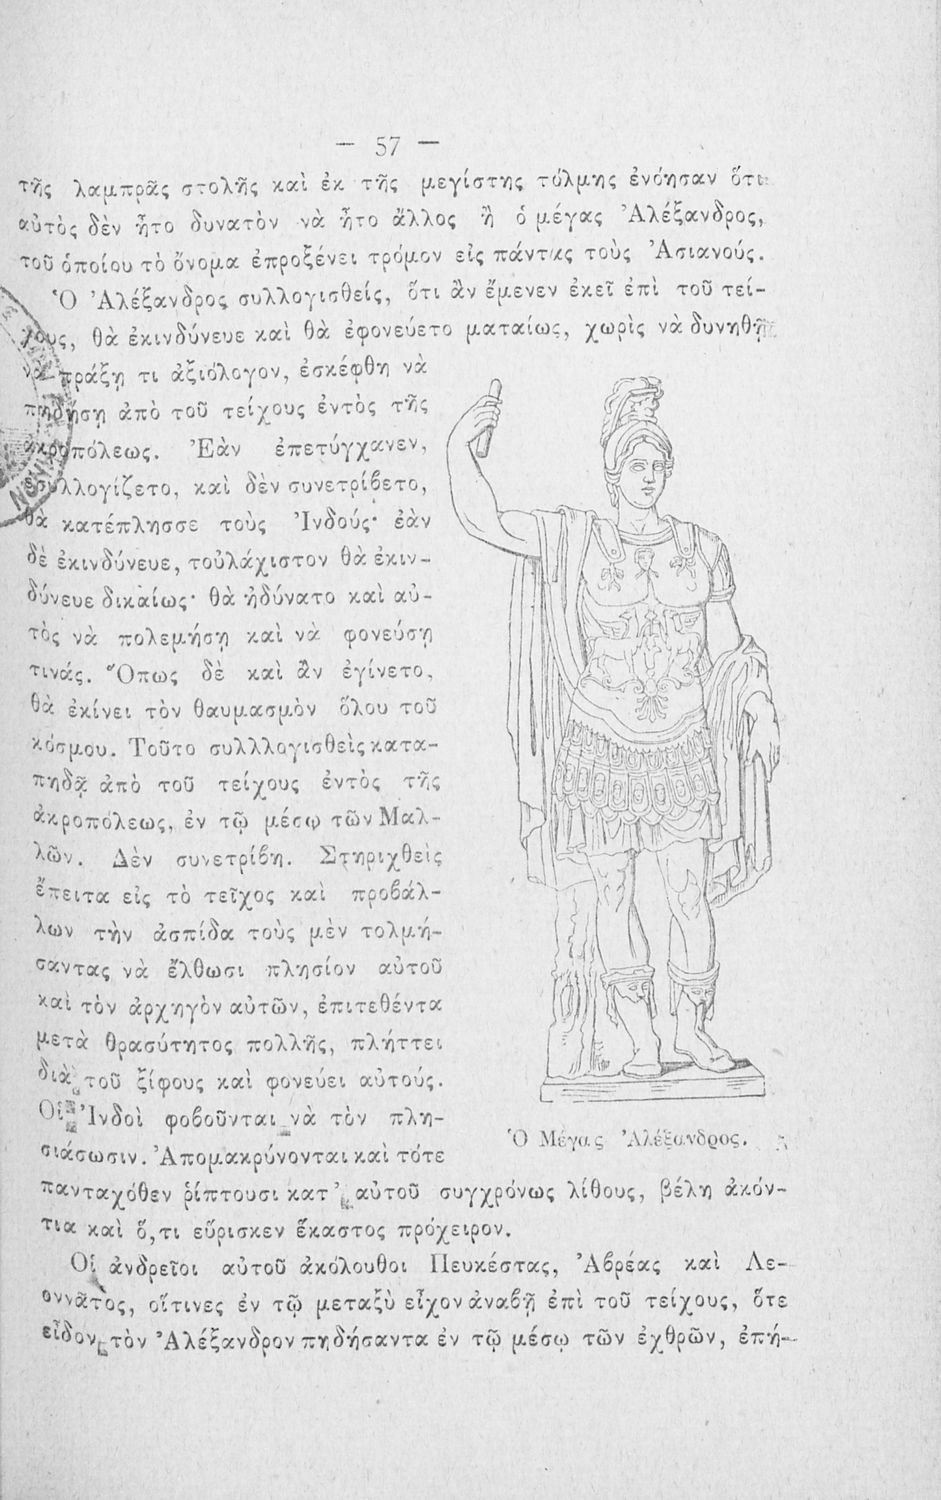 — 57 —
τῆς λαμπρᾶς στολῆς καὶ ἐκ τῆς μεγίστης τόλμης ἐνόησαν ὅτι
αὐτὸς δὲν ἦτο δυνατὸν νὰ ἦτο ἄλλος ἢ ὁ μέγας Ἀλέξανδρος,
τοῦ ὁποίου τὸ ὄνομα ἐπροξένει τρόμον εἰς πάντας τοὺς Ἀσιανούς.
Ὁ Ἀλέξανδρος συλλογισθείς, ὅτι ἂν ἔμενεν ἐκεῖ ἐπὶ τοῦ τεί-
χους, θὰ ἐκινδύνευε καὶ θὰ ἐφονεύετο ματαίως, χωρὶς νὰ δυνηθῇ
νὰ πράξῃ τι ἀξιόλογον, ἐσκέφθη νὰ
πηδήσῃ ἀπὸ τοῦ τείχους ἐντὸς τῆς
ἀκροπόλεως. Ἐὰν ἐπετύγχανεν,
ἐσυλλογίζετο, καὶ δὲν συνετρίβετο,
θὰ κατέπλησσε τοὺς Ἰνδούς· ἐὰν
δὲ ἐκινδύνευε, τοὐλάχιστον θὰ ἐκιν-
δύνευε δικαίως· θὰ ἠδύνατο καὶ αὐ-
τὸς νὰ πολεμήσῃ καὶ νὰ φονεύσῃ
τινάς. Ὅπως δὲ καὶ ἂν ἐγίνετο,
θὰ ἐκίνει τὸν θαυμασμὸν ὅλου τοῦ
κόσμου. Τοῦτο συλλλογισθεὶς κατα-
πηδᾷ ἀπὸ τοῦ τείχους ἐντὸς τῆς
ἀκροπόλεως, ἐν τῷ μέσῳ τῶν Μαλ-
λῶν. Δὲν συνετρίβη. Στηριχθεὶς
ἔπειτα εἰς τὸ τεῖχος καὶ προβάλ-
λων τὴν ἀσπίδα τοὺς μὲν τολμή-
σαντας νὰ ἔλθωσι πλησίον αὐτοῦ
καὶ τὸν ἀρχηγὸν αὐτῶν, ἐπιτεθέντα
μετὰ θρασύτητος πολλῆς, πλήττει
διὰ τοῦ ξίφους καὶ φονεύει αὐτούς.
Οἱ Ἰνδοὶ φοβοῦνται νὰ τὸν πλη-
σιάσωσιν. Ἀπομακρύνονται καὶ τότε
πανταχόθεν ῥίπτουσι κατ' αὐτοῦ συγχρόνως λίθους, βέλη ἀκόν-
τια καὶ ὅ,τι εὕρισκεν ἕκαστος πρόχειρον.
Οἱ ἀνδρεῖοι αὐτοῦ ἀκόλουθοι Πευκέστας, Ἀβρέας καὶ Λε-
οννᾶτος, οἵτινες ἐν τῷ μεταξὺ εἶχον ἀναβῆ ἐπὶ τοῦ τείχους, ὅτε
εἶδον τὸν Ἀλέξανδρον πηδήσαντα ἐν τῷ μέσῳ τῶν ἐχθρῶν, ἐπή-
Ὁ Μέγας Ἀλέξανδρος.